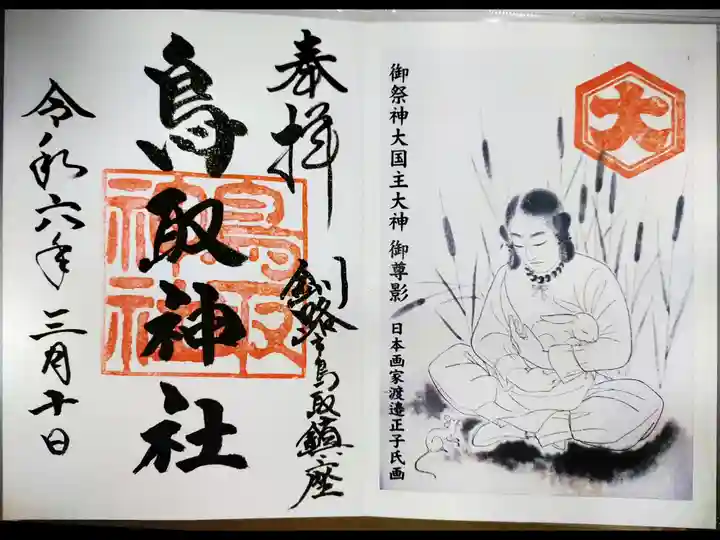 大
御祭神大国主大神 御尊影
日本画家渡邉正子氏画
奉拝
釧路市鳥取鎮座
鳥取神社
鳥取神社
令和六年三月十日